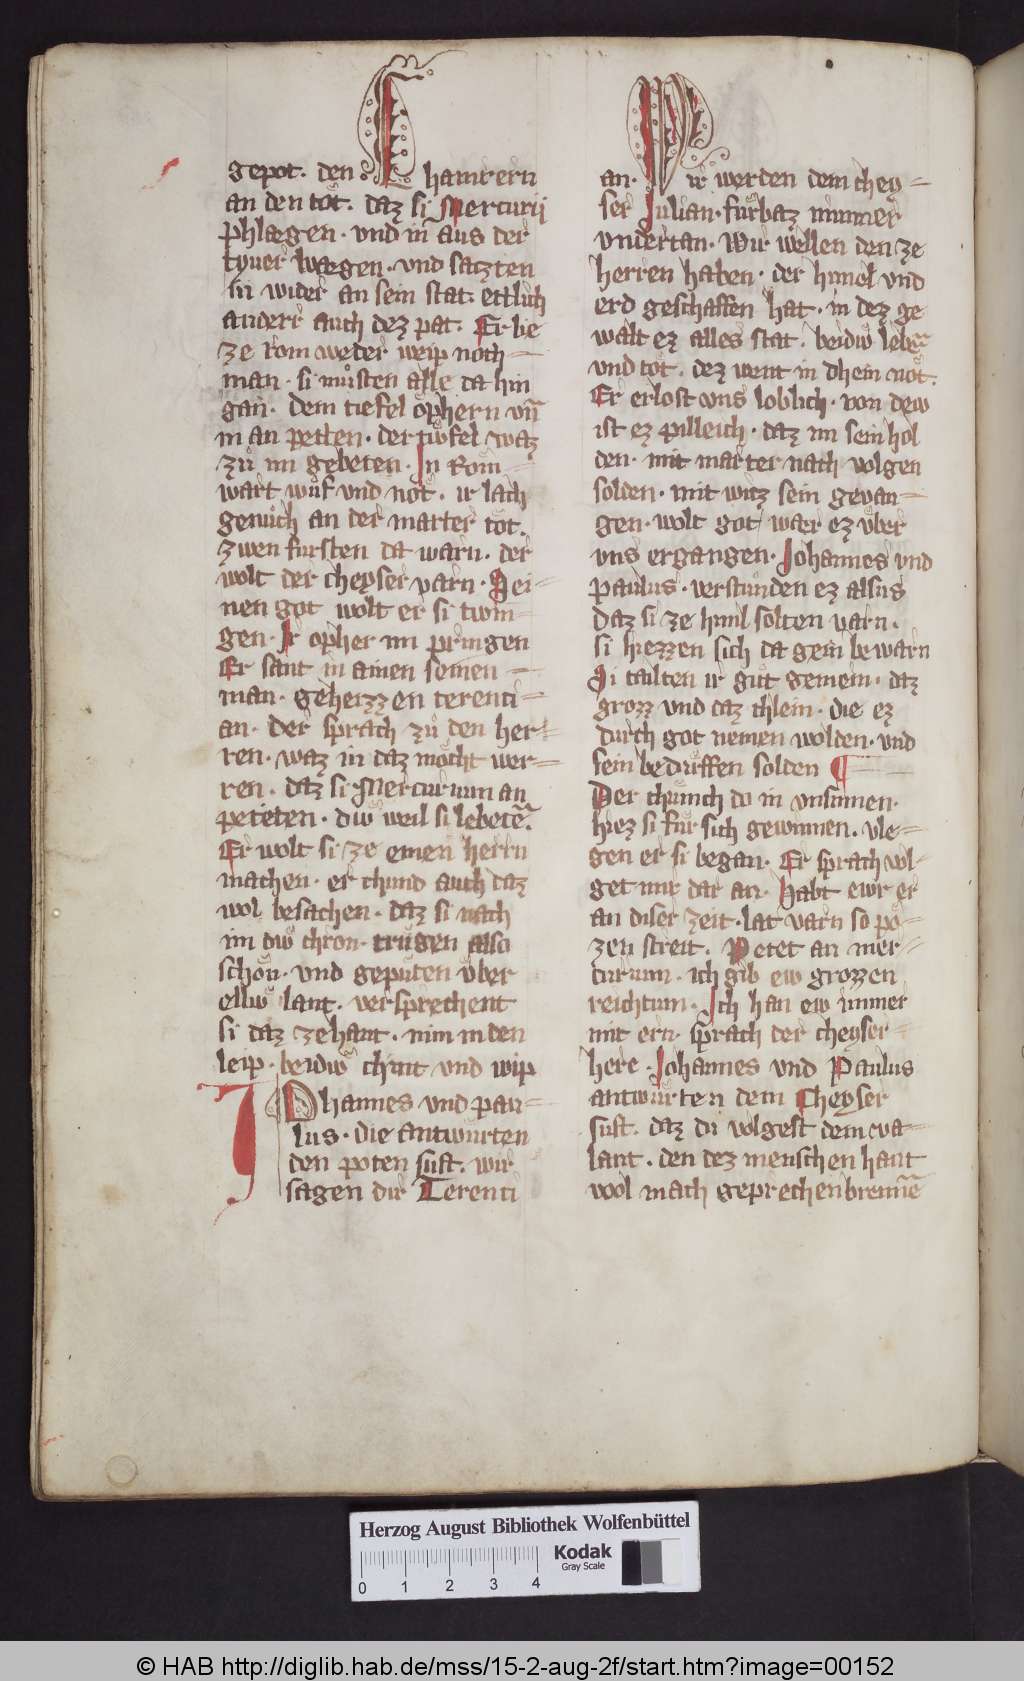 gepot. den Chamrern
an den tot. daz si Mercurij
phlægen. vnd in aus der
tyuer wægen. vnd satzten
in wider an sein stat. ettlich
anderr auch dez pat. Er lie
ze Rom weder weip noch
man. si muͦsten alle da hin
gan. dem tiefel ophern vn̄
in an petten. der tiͤfel waz
zuͦ im gebeten. In Rom
wart wuͤf vnd not. ir lach
genuͦch an der marter tot.
zwen fursten da warn. der
wolt der cheyser varn. Sei
nen got wolt er si twin
gen. Ir opher im pringen
Er sant in ainen seinen
man. geheizzen terenti
an. Der sprach zuͦ den her
ren. waz in daz moͤcht wer
ren. daz si Mercurium an
peteten. diw weil si lebetē.
Er wolt si ze einen herrn
machen. er chund auch daz
wol besachen. daz si nach
im diw chron. truͤgen also
schon. vnd gepuͤten vͤber
elliw lant. versprechent
si daz zehant. nim in den
leip. beidiw chint vnd wip
JOhannes vnd pau
lus. die antwurten
den poten sust. wir
sagen dir Terenti
an. Wir werden dem chey
ser Julian. fuͤrbaz nimmer
vndertan. Wir wellen den ze
herren haben. der himel vnd
erd geschaffen hat. in dez ge
walt ez alles stat. beidiw lebē
vnd tot. dez went in dhein not.
Er erlost vns loblich. von dew
ist ez pilleich. daz im sein hol
den. mit marter nach volgen
solden. mit witz sein gevan
gen. wolt got wær ez vͤber
vns ergangen. Johannes vnd
Paulus. verstuͦnden ez alsus
Daz si ze himl solten varn.
si hiezzen sich da gein bewarn
Si tailten ir guͦt gemein. daz
grozz vnd daz chlein. die ez
durch got nemen wolden. vnd
sein beduͤrffen solden ¶
Der chuͤnich do in vnsinnen.
hiez si fuͤr sich gewinnen. vle
gen er si began. Er sprach vol
get mir dar an. Habt ewr er
an diser zeit. lat varn so poͤ
zen streit. Petet an mer
curium. ich gib ew grozzen
reichtum. Ich han ew immer
mit ern. sprach der cheyser
here. Johannes vnd Paulus
antwurten dem Cheyser
sust. daz du volgest dem va
lant. den dez menschen hant
wol mach geprechen brennē
Herzog August Bibliothek Wolfenbüttel
0 1 2 3 4
Kodak
Gray Scale
© HAB http://diglib.hab.de/mss/15-2-aug-2f/start.htm?image=00152